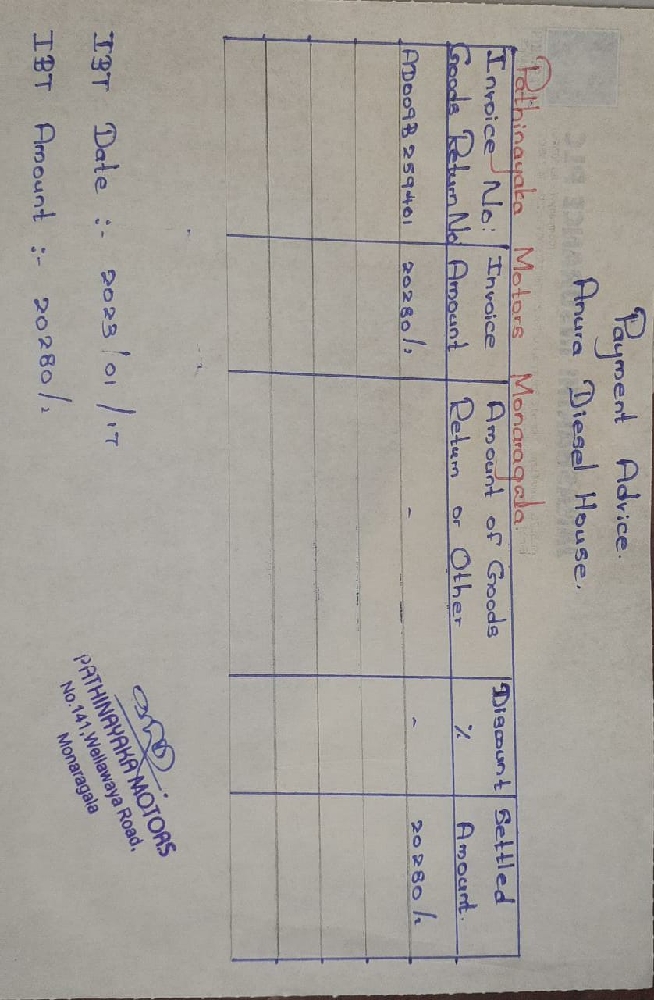 Payment Advice.
Anura Diesel House.
Pathinayaka Motors Monaragala.
Invoice No: Invoice Amount of Goods Discount Settled
Goods Return No Amount Return or Other % Amount.
AD009B259401 20280/= - - 20280/=
IBT Date :- 2023/01/17
IBT Amount :- 20280/=
PATHINAYAKA MOTORS
No.141,Wellawaya Road,
Monaragala